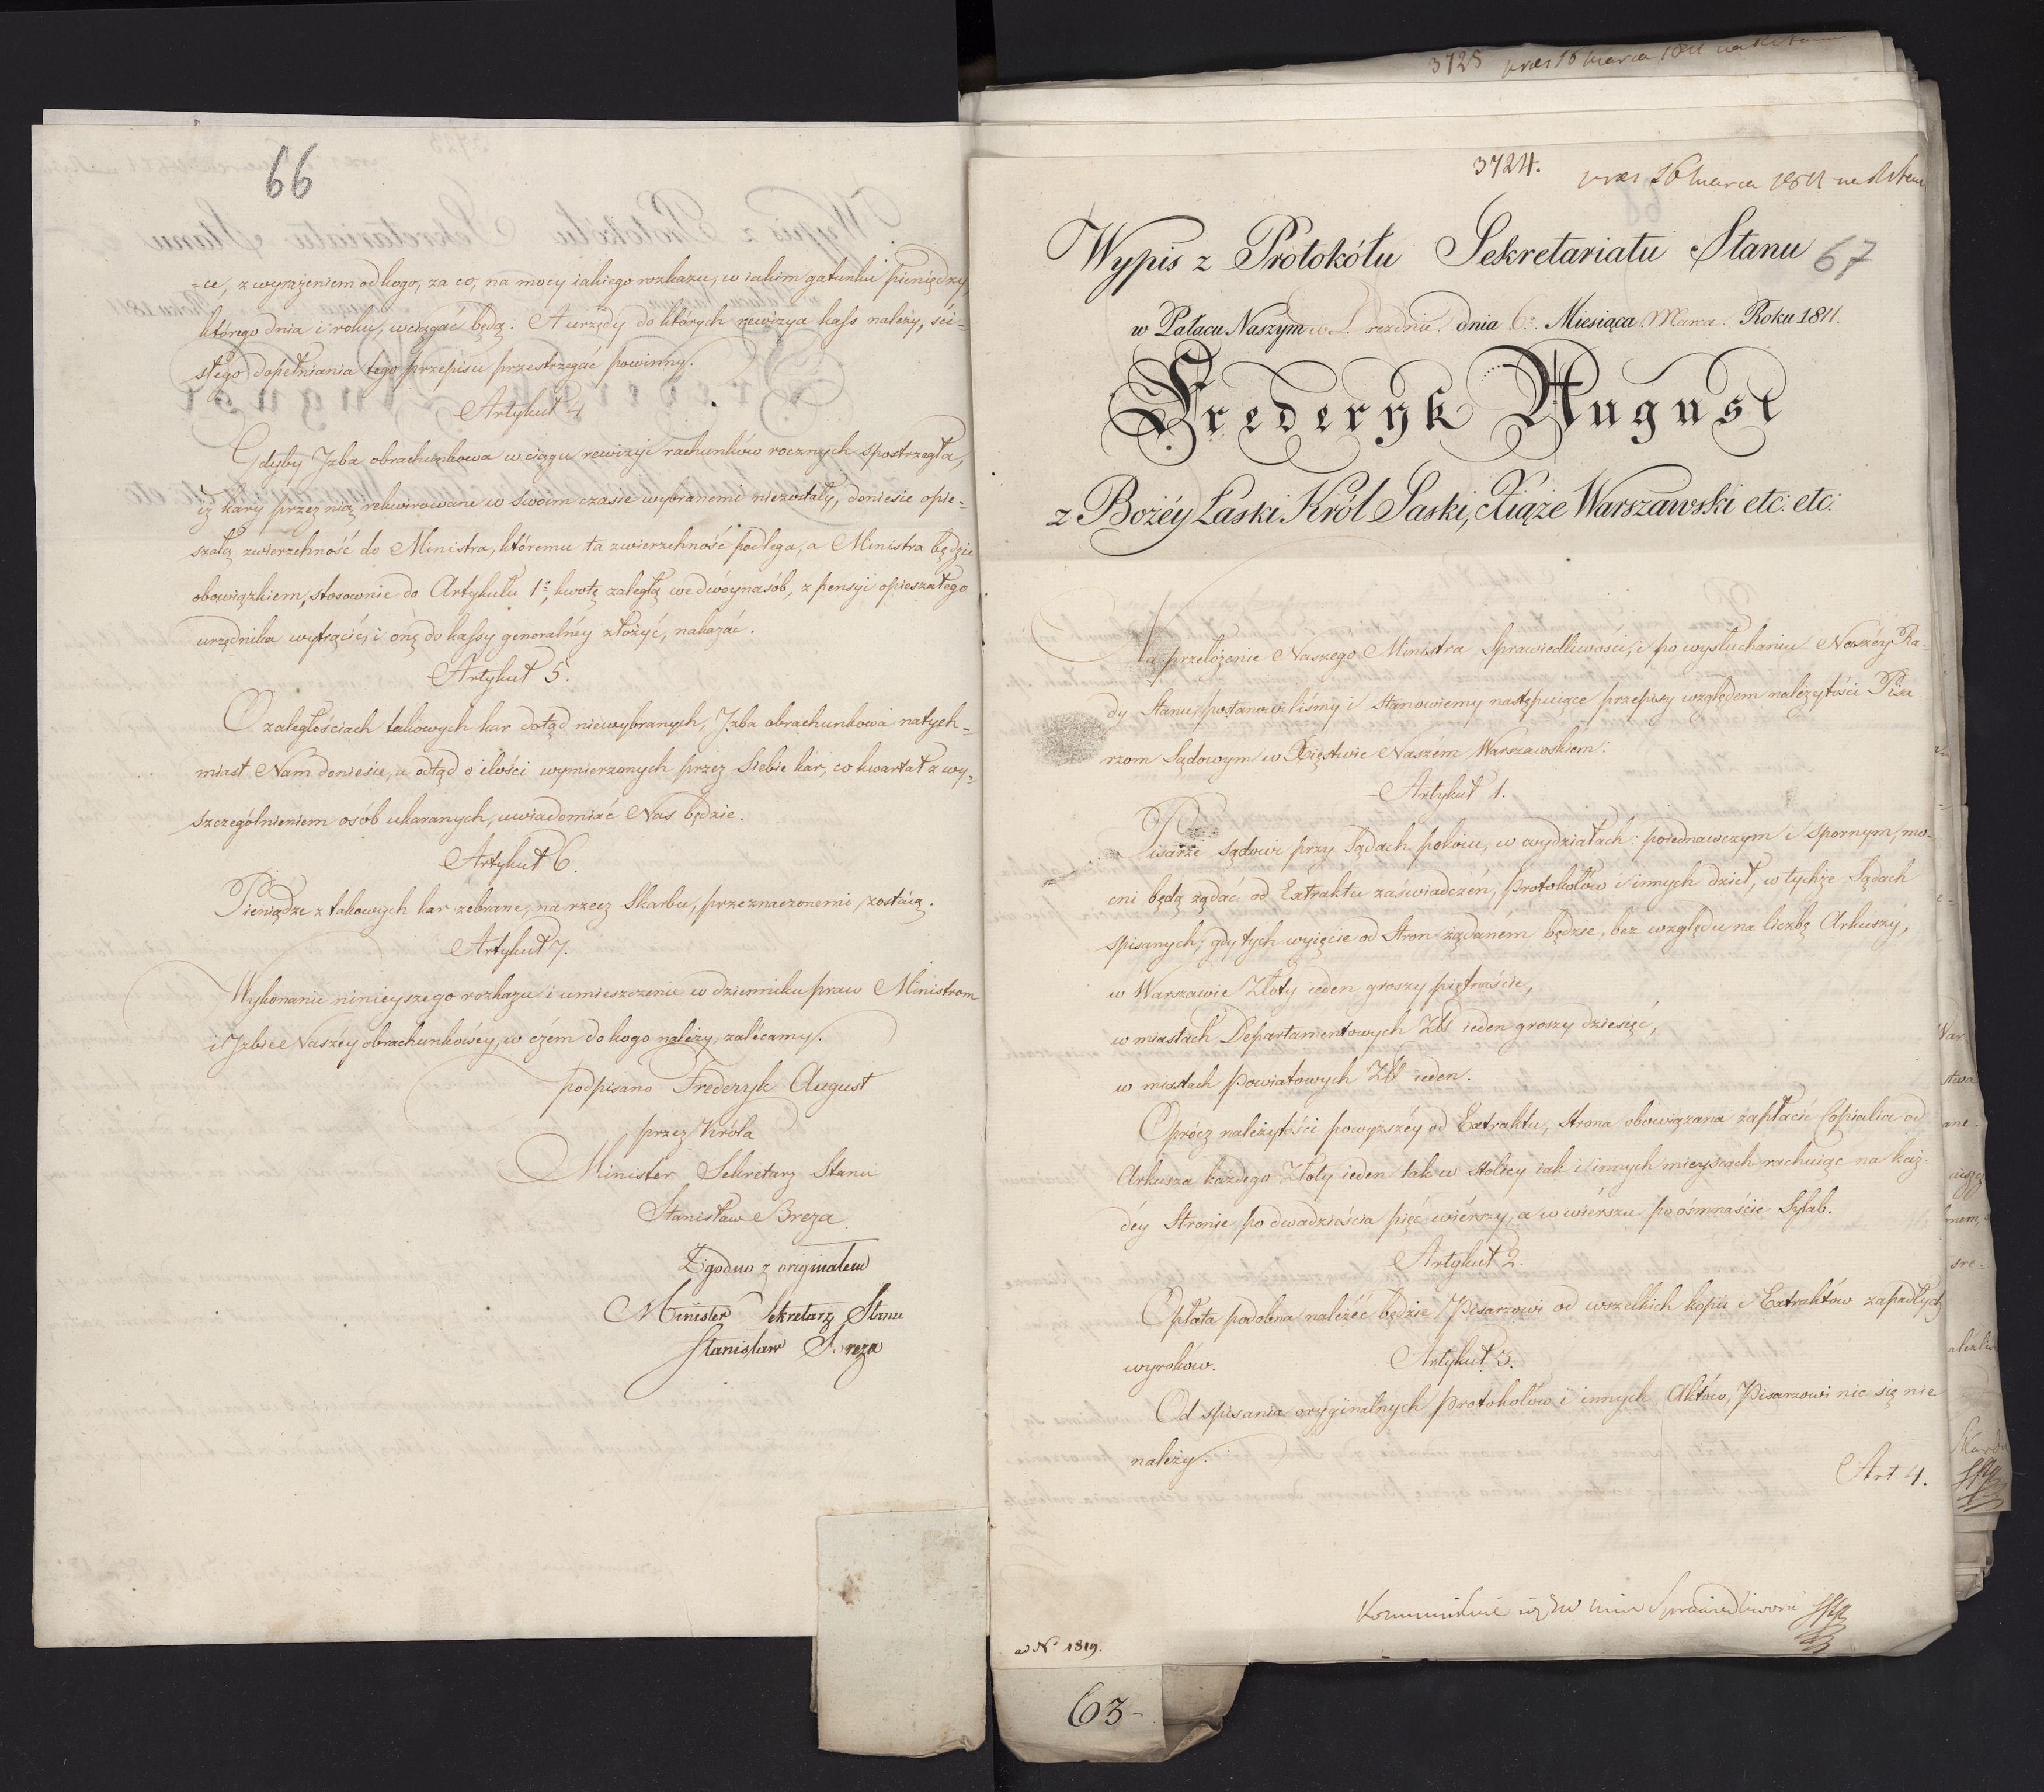 66
=ce, z wyrażeniem od kogo, za co, na mocy iakiego rozkazu, w iakim gatunku pieniędzy
którego dnia i roku, wciągać będą. A urzędy do których rewizya kass należy, ści=
słego dopełniania tego przepisu przestrzegać powinny.
Artykuł 4
Gdyby Izba obrachunkowa w ciągu rewizyi rachunków rocznych spostrzegła,
iż kary przez nią rekwirowane w swoim czasie wybranemi niezostały, doniesie opie=
szałą zwierzchność do Ministra, któremu ta zwierzchność podlega, a Ministra będzie
obowiązkiem, stosownie do Artykułu 1º, kwotę zaległą we dwóynasób, z pensyi opieszałego
urzędnika wytrącić, i onę do kassy generalnéy złożyć, nakazać.
Artykuł 5.
O zaległościach takowych kar dotąd niewybranych, Izba obrachunkowa natych=
miast Nam doniesie, a odtąd o ilości wymierzonych przez Siebie kar, co kwartał z wy=
szczególnieniem osób ukaranych, uwiadomiać Nas będzie.
Artykuł 6.
Pieniądze z takowych kar zebrane, na rzecz Skarbu, przeznaczonemi zostaią.
Artykuł 7.
Wykonanie ninieyszego rozkazu i umieszczenie w dzienniku praw Ministrom
i Izbie Naszéy obrachunkowéy, w czem do kogo należy, zalécamy.
podpisano Fryderyk August
przez Króla
Minister Sekretarz Stanu
Stanisław Breza
Zgodno z originałem
Minister Sekretarz Stanu
Stanisław Breza
3725 præs 16 marca 1811
3724. præs 16 marca 1811
Wypis z Protokółu Sekretariatu Stanu 67
w Pałacu Naszym w Dreznie dnia 6º Miesiąca Marca Roku 1811.
Frederyk August
z Bożéy Łaski Król Saski, Xiąże Warszawski etc: etc:
Na przełożenie Naszego Ministra Sprawiedliwości, i po wysłuchaniu Naszéy Ra=
dy Stanu, postanowiliśmy i stanowiemy następuiące przepisy względem należytości Pisa
rzom Sądowym w Xięstwie Naszém Warszawskiém:
Artykuł 1.
Pisarze Sądowi przy Sądach pokoiu, w wydziałach: poiednawczym i spornym, mo=
cni będą żądać od Extraktu zaświadczeń, protokołów i innych dzieł, w tychże Sądach
spisanych; gdy tych wyięcie od Stron żądaném będzie, bez względu na liczbę Arkuszy,
w Warszawie Złoty ieden groszy piętnaście,
w miastach Departamentowych Zł ieden groszy dziesięć,
w miastach Powiatowych Zł ieden.
Oprócz należytości powyższéy od Extraktu, Strona obowiązana zapłacić Copialia od
Arkusza każdego Złoty ieden tak w Stolicy iak i innych mieyscach rachuiąc na każ=
déy Stronie po dwadzieścia pięć wiérszy, a w wiérszu po ośmnaście Syllab.
Artykuł 2.
Opłata podobna należéć będzie Pisarzowi od wszelkich kopii i Extraktów zapadłych
wyroków.
Artykuł 3.
Od spisania orygiinalnych protokołów i innych Aktów, Pisarzowi nic się nie
należy.
Art 4.
ad Nº 1819.
63-